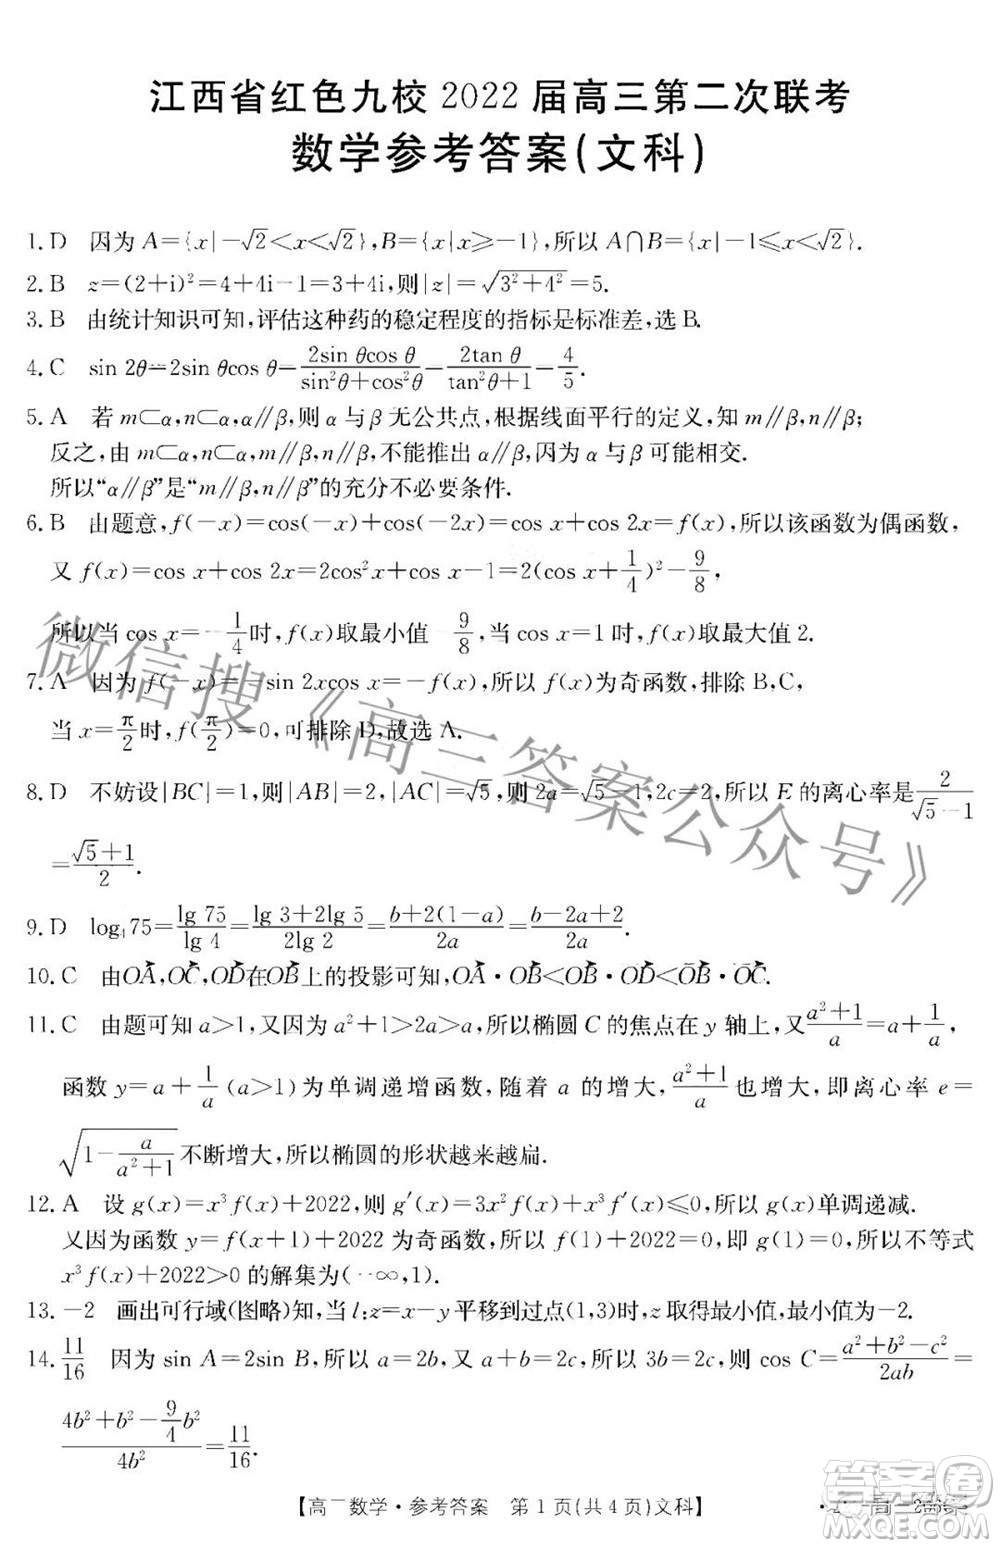 江西省红色九校 2022 届高三第二次联考
数学参考答案(文科)
1. D 因为 A={x|-√2<x<√2},B={x|x≥-1},所以 A∩B={x|-1≤x<√2}.
2. B z=(2+i)²=4+4i-1=3+4i,则|z|=√(3²+4²)=5.
3. B 由统计知识可知,评估这种药的稳定程度的指标是标准差,选 B.
4. C sin 2θ=2sin θcos θ=2sin θcos θ/(sin²θ+cos²θ)=2tan θ/(tan²θ+1)=4/5.
5. A 若 m⊂α,n⊂α,α∥β,则 α 与 β 无公共点,根据线面平行的定义,知 m∥β,n∥β;
反之,由 m⊂α,n⊂α,m∥β,n∥β,不能推出 α∥β,因为 α 与 β 可能相交.
所以“α∥β”是“m∥β,n∥β”的充分不必要条件.
6. B 由题意,f(-x)=cos(-x)+cos(-2x)=cos x+cos 2x=f(x),所以该函数为偶函数,
又 f(x)=cos x+cos 2x=2cos²x+cos x-1=2(cos x+1/4)²-9/8,
所以当 cos x=-1/4时,f(x)取最小值-9/8,当 cos x=1 时,f(x)取最大值 2.
7. A 因为 f(-x)=-sin 2xcos x=-f(x)为奇函数,排除 B,C,
当 x=π/2时,f(π/2)=0,可排除 D,故选 A.
8. D 不妨设|BC|=1,则|AB|=2,|AC|=√5,则 2a=√5-1,2c=2,所以 E 的离心率是2/(√5-1)
=(√5+1)/2.
9. D log₄75=lg 75/lg 4=(lg 3+2lg 5)/(2lg 2)=(b+2(1-a))/2a=(b-2a+2)/2a.
10. C 由OA→,OC→,OD→在OB→上的投影可知,OA→·OB→<OC→·OB→<OD→·OB→.
11. C 由题可知 a>1,又因为 a²+1>2a>a,所以椭圆 C 的焦点在 y 轴上,又(a²+1)/a=a+1/a,
函数 y=a+1/a(a>1)为单调递增函数,随着 a 的增大,(a²+1)/a也增大,即离心率 e=
√(1-a/(a²+1))不断增大,所以椭圆的形状越来越扁.
12. A 设 g(x)=x³f(x)+2022,则 g′(x)=3x²f(x)+x³f′(x)≤0,所以 g(x)单调递减.
又因为函数 y=f(x+1)+2022 为奇函数,所以 f(1)+2022=0,即 g(1)=0,所以不等式
x³f(x)+2022>0 的解集为(-∞,1).
13. -2 画出可行域(图略)知,当 l:z=x-y 平移到过点(1,3)时,z 取得最小值,最小值为-2.
14. 11/16 因为 sin A=2sin B,所以 a=2b,又 a+b=2c,所以 3b=2c,则 cos C=(a²+b²-c²)/2ab=
(4b²+b²-9/4b²)/4b²=11/16.
【高三数学·参考答案 第 1 页(共 4 页)文科】
微信搜《高三答案公众号》
答案圈
MXQE.COM